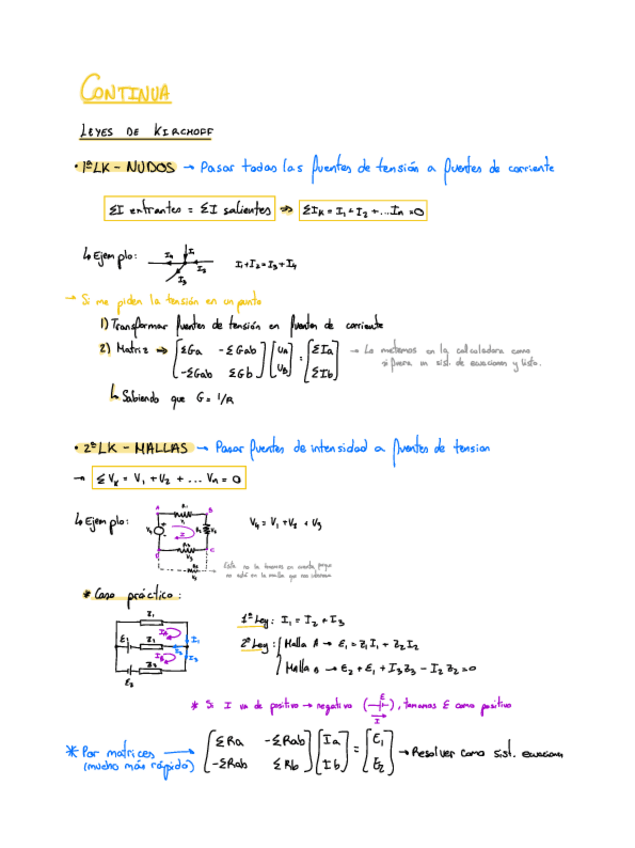 CONTINUA
LEYES DE KIRCHOFF
• 1ªLK - NUDOS → Pasar todas las fuentes de tensión a fuentes de corriente
ΣI entrantes = ΣI salientes ⇒ ΣIk = I1 + I2 + ... In = 0
↳ Ejemplo: I1 + I2 = I3 + I4
I4 I1 I2 I3
→ Si me piden la tensión en un punto
1) Transformar fuentes de tensión en fuentes de corriente
2) Matriz ⇒ (ΣGa -ΣGab; -ΣGab ΣGb) [UA; UB] = [ΣIa; ΣIb] → Lo metemos en la calculadora como
si fuera un sist. de ecuaciones y listo.
↳ Sabiendo que G = 1/R
• 2ªLK - MALLAS → Pasar fuentes de intensidad a fuentes de tension
→ ΣVk = V1 + V2 + ... Vn = 0
↳ Ejemplo: V4 = V1 + V2 + V3
A B C D
Esta no la tenemos en cuenta porque
no está en la malla que nos
* Caso práctico:
1ª Ley: I1 = I2 + I3
2ª Ley: Malla A → E1 = Z1I1 + Z2I2
Malla B → E2 + E1 + I3Z3 - I2Z2 = 0
* Si I va de positivo → negativo, tomamos E como positivo
* Por matrices → (ΣRa -ΣRab; -ΣRab ΣRb) [Ia; Ib] = [E1; E2] → Resolver como sist. ecuaciones
(mucho más rápido)